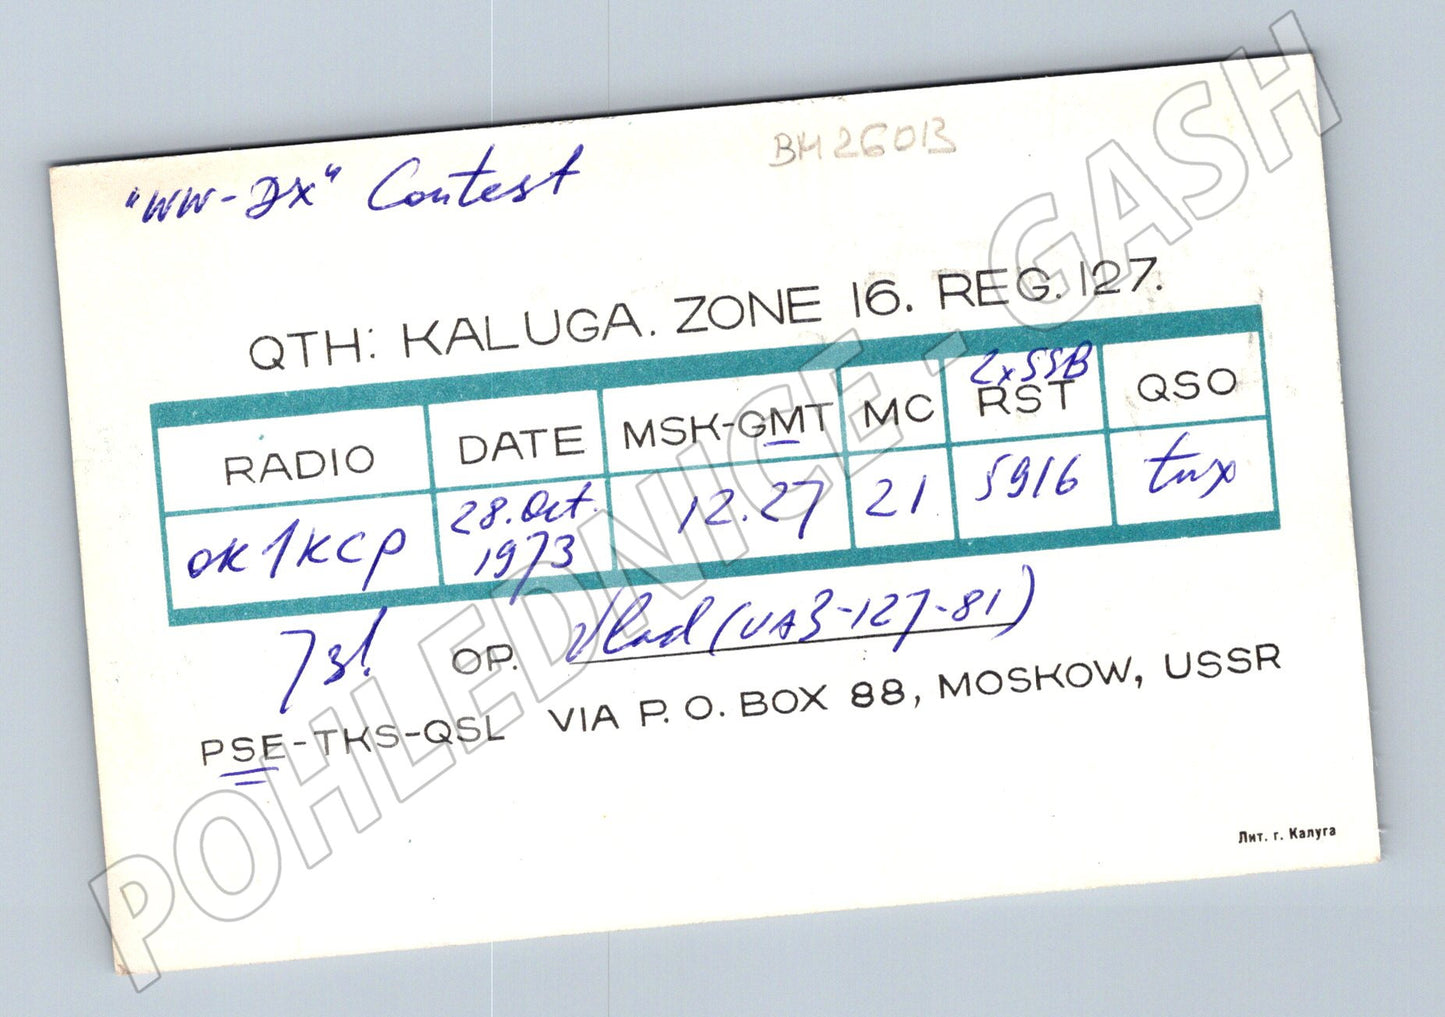 "WW-DX" Contest
BM26013
QTH: KALUGA. ZONE 16. REG. 127.
RADIO DATE MSK-GMT MC 2xSSB RST QSO
OK1KCP 28. Oct. 1973 12.27 21 5916 tnx
73! OP. Vlad (UA3-127-81)
PSE-TKS-QSL VIA P. O. BOX 88, MOSKOW, USSR
Лит. г. Калуга
POHLEDNICE - GASH